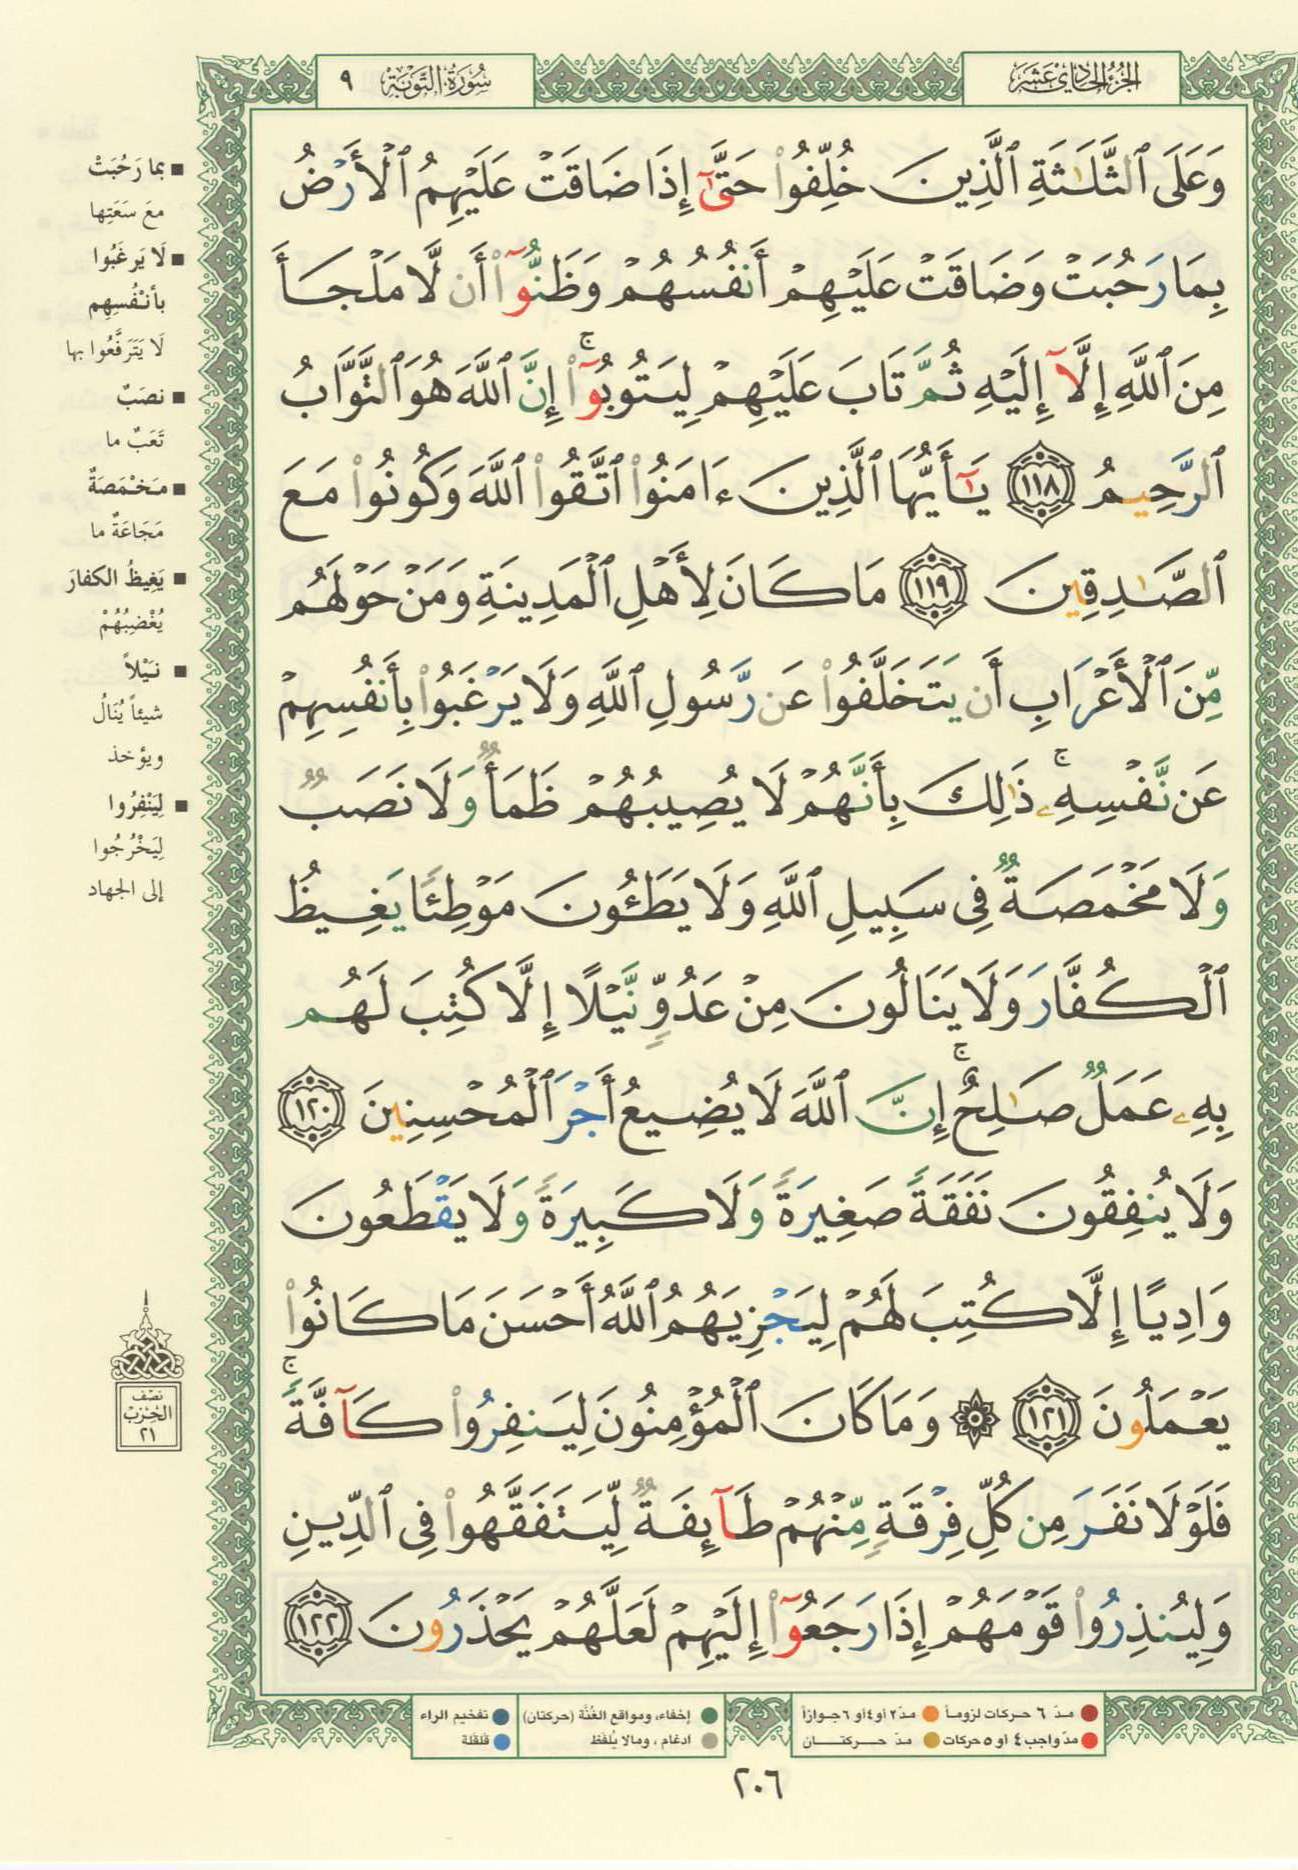 الجزء الحادي عشر
سورة التوبة ٩
وَعَلَى ٱلثَّلَـٰثَةِ ٱلَّذِينَ خُلِّفُوا۟ حَتَّىٰٓ إِذَا ضَاقَتْ عَلَيْهِمُ ٱلْأَرْضُ
بِمَا رَحُبَتْ وَضَاقَتْ عَلَيْهِمْ أَنفُسُهُمْ وَظَنُّوٓا۟ أَن لَّا مَلْجَأَ
مِنَ ٱللَّهِ إِلَّآ إِلَيْهِ ثُمَّ تَابَ عَلَيْهِمْ لِيَتُوبُوٓا۟ ۚ إِنَّ ٱللَّهَ هُوَ ٱلتَّوَّابُ
ٱلرَّحِيمُ ١١٨ يَـٰٓأَيُّهَا ٱلَّذِينَ ءَامَنُوا۟ ٱتَّقُوا۟ ٱللَّهَ وَكُونُوا۟ مَعَ
ٱلصَّـٰدِقِينَ ١١٩ مَا كَانَ لِأَهْلِ ٱلْمَدِينَةِ وَمَنْ حَوْلَهُم
مِّنَ ٱلْأَعْرَابِ أَن يَتَخَلَّفُوا۟ عَن رَّسُولِ ٱللَّهِ وَلَا يَرْغَبُوا۟ بِأَنفُسِهِمْ
عَن نَّفْسِهِۦ ۚ ذَٰلِكَ بِأَنَّهُمْ لَا يُصِيبُهُمْ ظَمَأٌ وَلَا نَصَبٌ
وَلَا مَخْمَصَةٌ فِى سَبِيلِ ٱللَّهِ وَلَا يَطَـُٔونَ مَوْطِئًا يَغِيظُ
ٱلْكُفَّارَ وَلَا يَنَالُونَ مِنْ عَدُوٍّ نَّيْلًا إِلَّا كُتِبَ لَهُم
بِهِۦ عَمَلٌ صَـٰلِحٌ ۚ إِنَّ ٱللَّهَ لَا يُضِيعُ أَجْرَ ٱلْمُحْسِنِينَ ١٢٠
وَلَا يُنفِقُونَ نَفَقَةً صَغِيرَةً وَلَا كَبِيرَةً وَلَا يَقْطَعُونَ
وَادِيًا إِلَّا كُتِبَ لَهُمْ لِيَجْزِيَهُمُ ٱللَّهُ أَحْسَنَ مَا كَانُوا۟
يَعْمَلُونَ ١٢١ ۞ وَمَا كَانَ ٱلْمُؤْمِنُونَ لِيَنفِرُوا۟ كَآفَّةً ۚ
فَلَوْلَا نَفَرَ مِن كُلِّ فِرْقَةٍ مِّنْهُمْ طَآئِفَةٌ لِّيَتَفَقَّهُوا۟ فِى ٱلدِّينِ
وَلِيُنذِرُوا۟ قَوْمَهُمْ إِذَا رَجَعُوٓا۟ إِلَيْهِمْ لَعَلَّهُمْ يَحْذَرُونَ ١٢٢
■ بما رَحُبَتْ
معَ سَعَتِها
■ لَا يَرغَبُوا
بأنْفُسِهِم
لَا يَتَرَفَّعُوا بها
■ نصَبٌ
تَعَبٌ ما
■ مَخْمَصَةٌ
مَجَاعَةٌ ما
■ يَغِيظُ الكفارَ
يُغْضِبُهُمْ
■ نَيْلاً
شيئاً يُنَالُ
ويؤخذ
■ لِيَنْفِرُوا
لِيَخْرُجُوا
إلى الجهاد
نصف
الحزب
٢١
مدّ ٦ حركات لزوماً ● مدّ ٢ أو ٤ أو ٦ جوازاً
مدّ واجب ٤ أو ٥ حركات ● مدّ حركتـــان
إخفاء، ومواقع الغُنَّة (حركتان) ● تفخيم الراء
ادغام، ومالا يُلفَظ ● قلقلة
٢٠٦